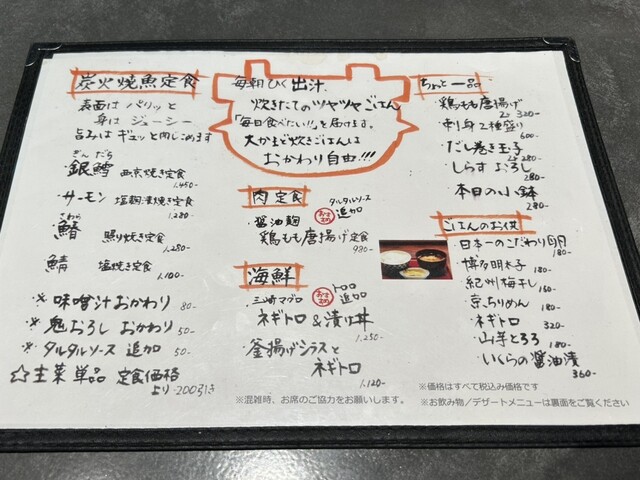 炭火焼魚定食
表面は パリッと
身は ジューシー
旨みは ギュッと閉じこめます
ぎんだら
銀鱈 西京焼き定食
1.450-
サーモン 塩麹漬焼き定食
1.280-
さわら
鰆 照り焼き定食
1.280-
鯖 塩焼き定食
1.100-
※ 味噌汁おかわり 80-
※ 鬼おろし おかわり 50-
※ タルタルソース 追加 50-
☆主菜単品 定食価格
より -200引き
毎朝ひく 出汁
炊きたてのツヤツヤごはん
「毎日食べたい!!」を届けます。
大かまど炊きごはんは
おかわり自由!!!
肉 定食
タルタルソース
追加
・醤油麹
鶏もも唐揚げ定食
980-
海鮮
トロロ
追加
・三崎マグロ
ネギトロ & 漬け丼
1.250-
・釜揚げシラスと
ネギトロ
1.120-
※混雑時、お席のご協力をお願いします。
ちょっと一品
・鶏もも唐揚げ
2ヶ 320-
・刺身2種盛り
600-
・だし巻き玉子
2ヶ 280-
・しらす おろし
280-
・本日の小鉢
280-
ごはんのお供
・日本一のこだわり卵
180-
・博多明太子
180-
・紀州梅干し
160-
・京ちりめん
180-
・ネギトロ
320-
・山芋とろろ
180-
・いくらの醤油漬
360-
※価格はすべて税込み価格です
※お飲み物/デザートメニューは裏面をご覧ください